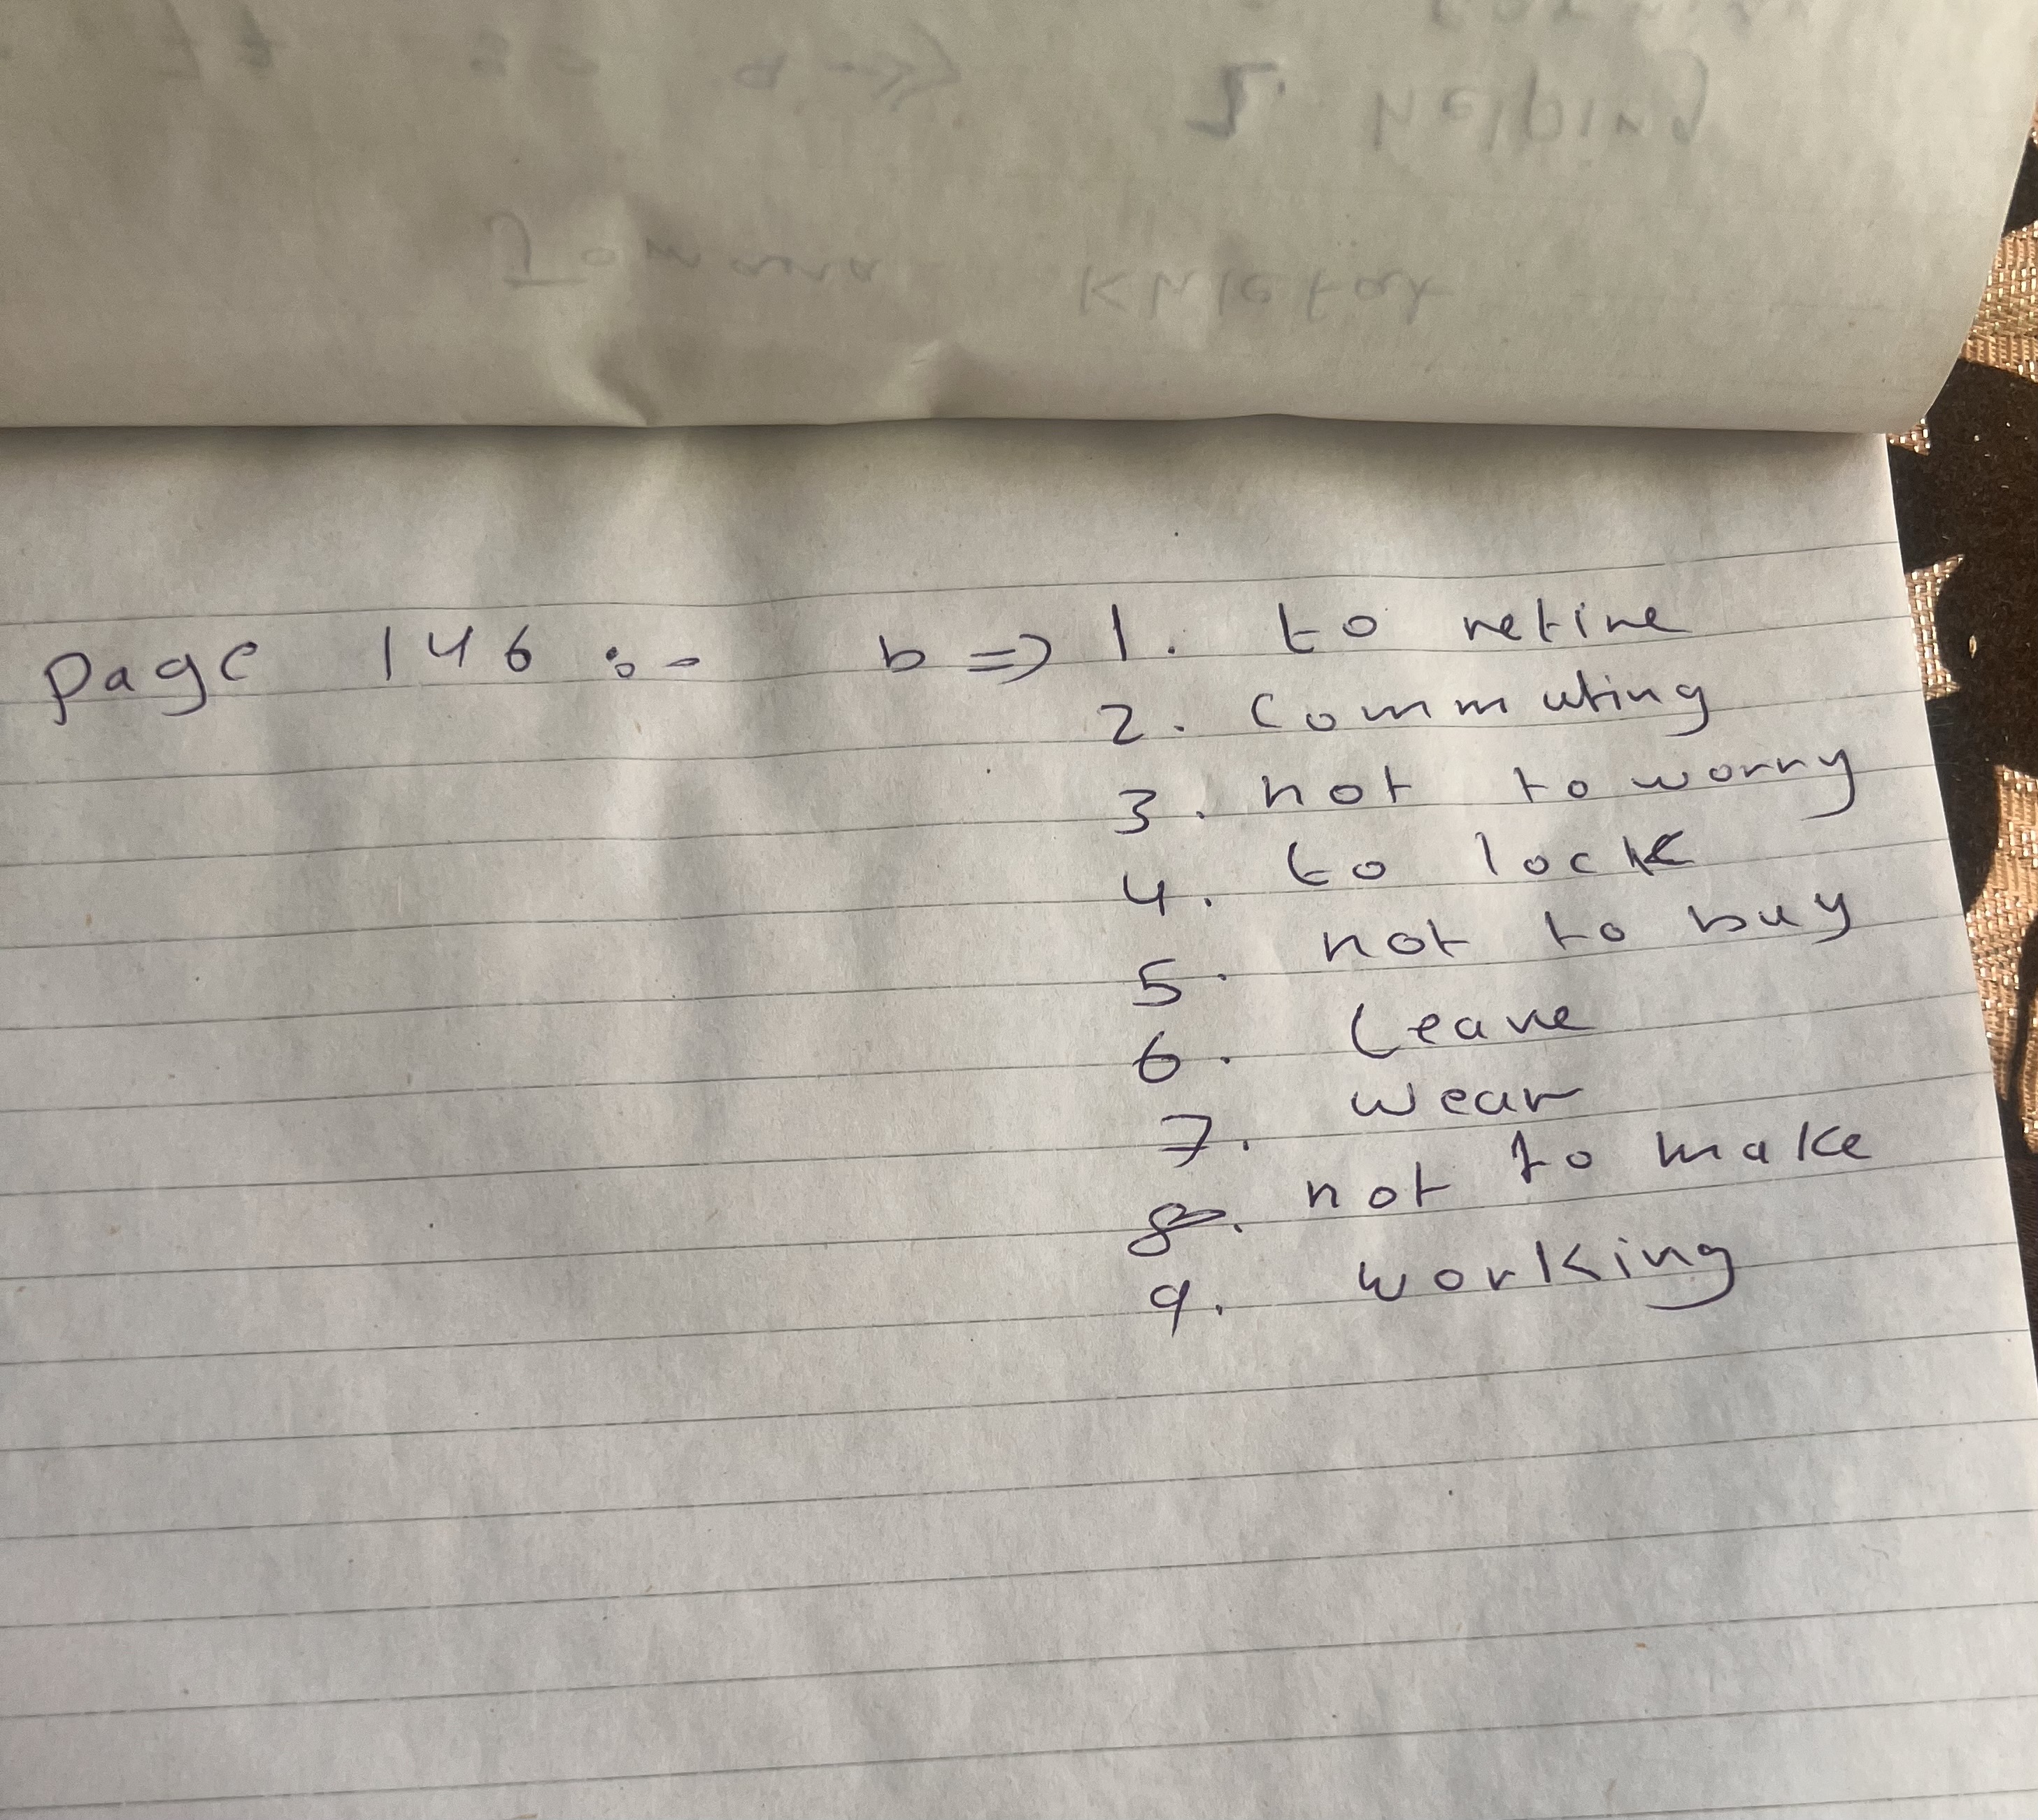 2. helping
Jomana
Page 146 :- b => 1. to retire
2. commuting
3. not to worry
4. to lock
5. not to buy
6. leave
7. wear
8. not to make
9. working